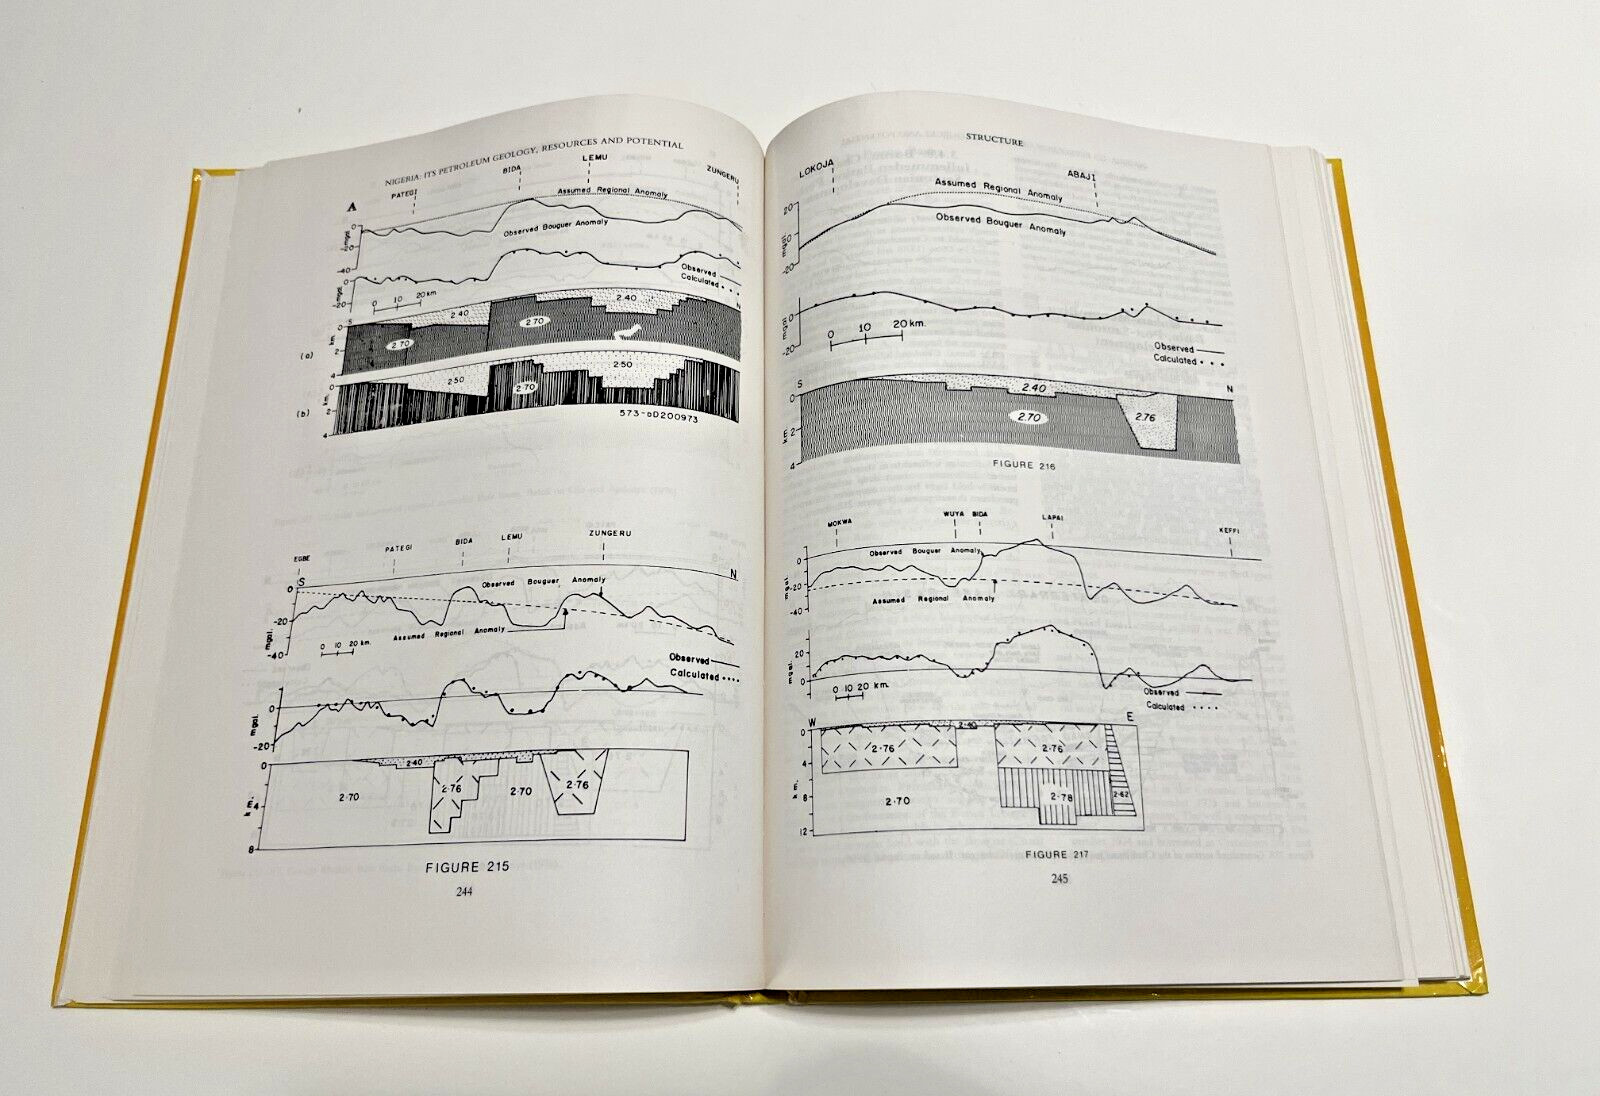 NIGERIA: ITS PETROLEUM GEOLOGY, RESOURCES AND POTENTIAL
PATEGI BIDA LEMU ZUNGERU
A
Assumed Regional Anomaly
Observed Bouguer Anomaly
0
-20
-40
mgal.
Observed
Calculated
0
-20
mgal.
0 10 20 km
S N
2.40 2.40
2.70
2.70
0
2
4
km.
(a)
2.50 2.50
2.70
0
2
4
km.
(b)
573-oD200973
EGBE PATEGI BIDA LEMU ZUNGERU
S N
Observed Bouguer Anomaly
0
-20
-40
mgal.
Assumed Regional Anomaly
0 10 20 km.
Observed
Calculated
0
-20
mgal.
0
4
8
km.
2.40
2.70 2.76 2.70 2.76
FIGURE 215
244
STRUCTURE
LOKOJA ABAJI
Assumed Regional Anomaly
Observed Bouguer Anomaly
20
0
-20
mgal.
0
-20
mgal.
0 10 20 km.
Observed
Calculated
S N
2.40
2.70 2.76
0
2
4
km.
FIGURE 216
MOKWA WUYA BIDA LAPAI KEFFI
Observed Bouguer Anomaly
0
-20
-40
mgal.
Assumed Regional Anomaly
20
0
mgal.
0 10 20 km.
Observed
Calculated
W E
2.40
2.76 2.76
2.70 2.78 2.62
0
4
8
12
km.
FIGURE 217
245